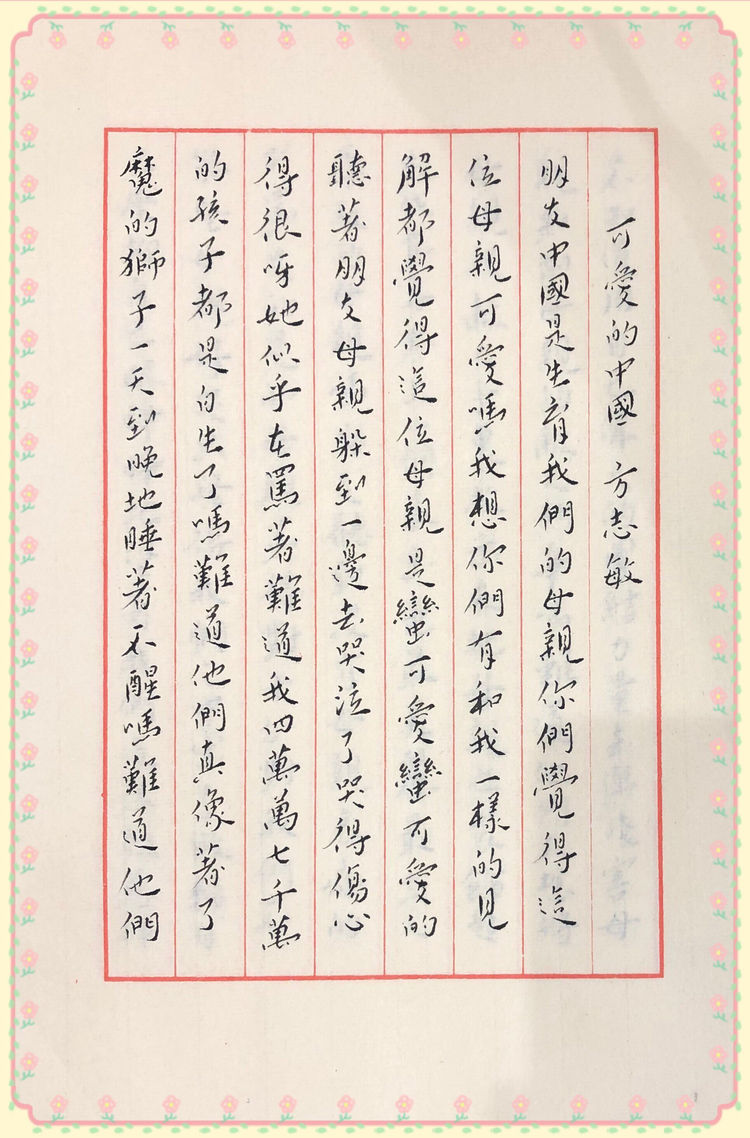 可愛的中國 方志敏
朋友中國是生育我們的母親你們覺得這
位母親可愛嗎我想你們有和我一樣的見
解都覺得這位母親是蠻可愛蠻可愛的
聽著朋友母親躲到一邊去哭泣了哭得傷心
得很呀她似乎在罵著難道我四萬萬七千萬
的孩子都是白生了嗎難道他們真像著了
魔的獅子一天到晚地睡著不醒嗎難道他們